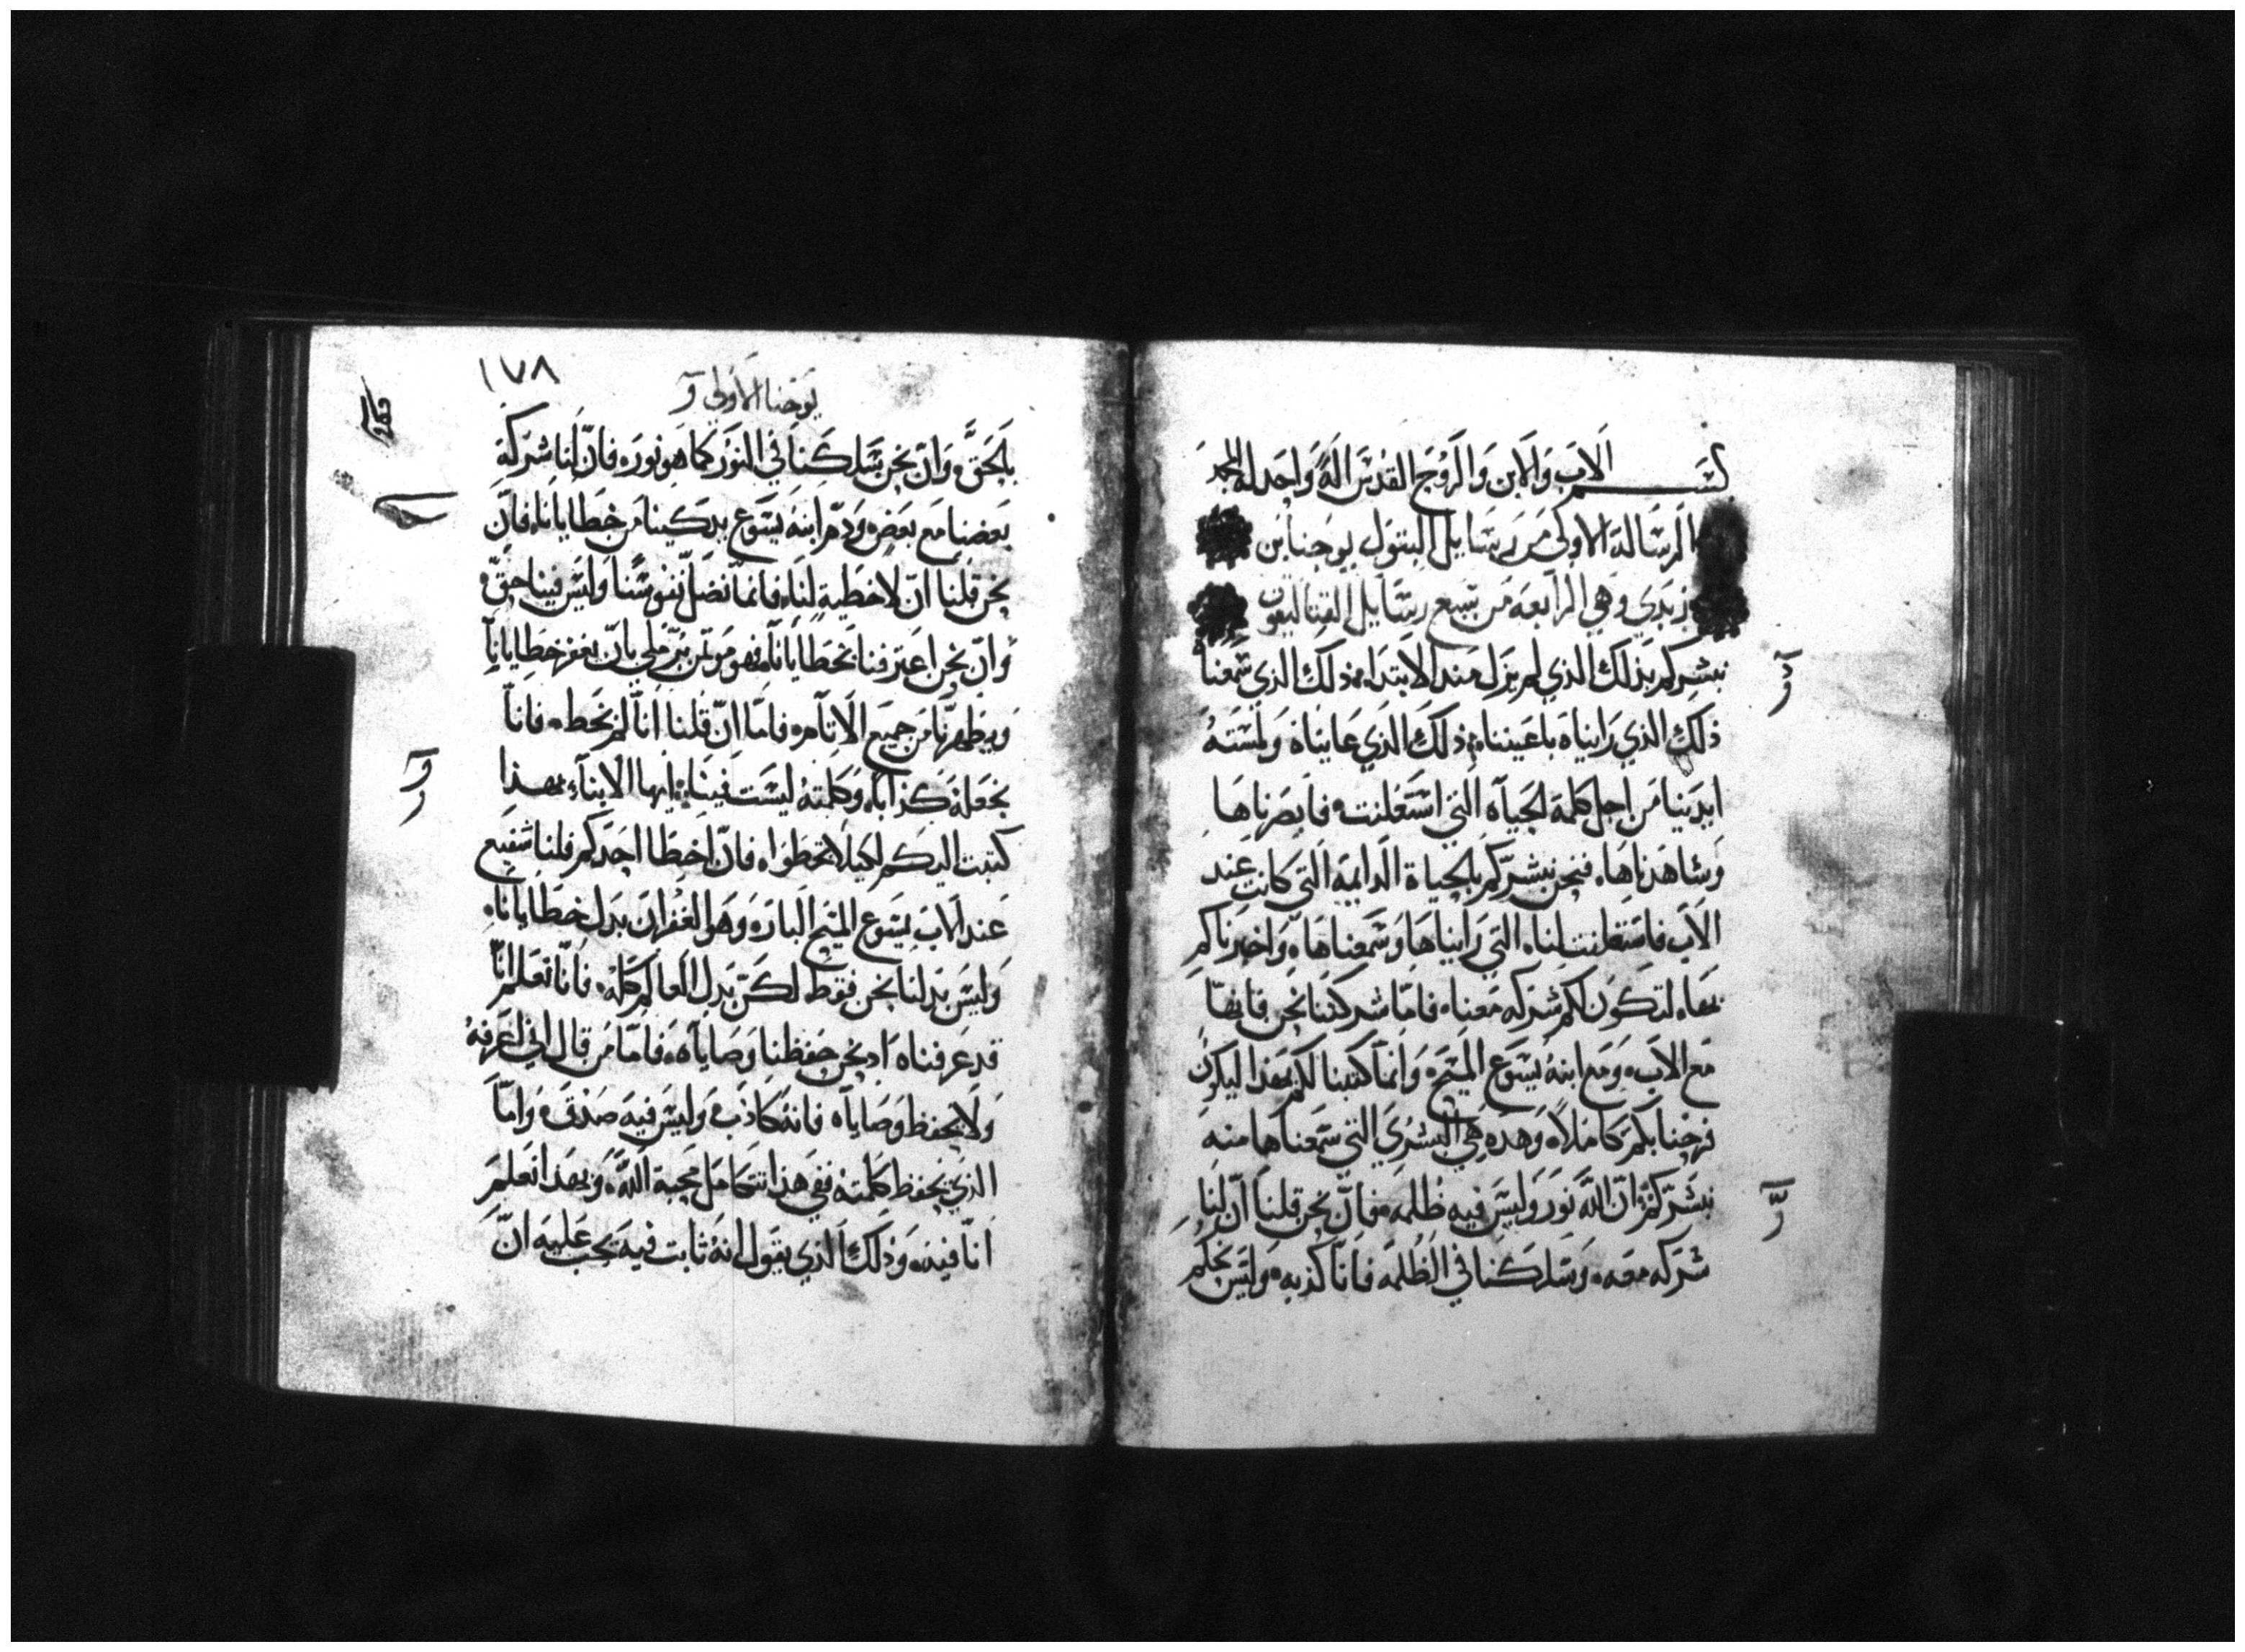 بسم الاب والابن والروح القدس اله واحد له المجد
الرساله الاولى من رسايل البتول يوحنا بن
زبدي وهي الرابعه من سبع رسايل القتاليقون
نبشركم بذلك الذي لم يزل منذ الابتداء ذلك الذي سمعناه
ذلك الذي رايناه باعيننا، ذلك الذي عايناه ولمسته
ايدينا من اجل كلمة الحياه التي استعلنت، فابصرناها
وشاهدناها، فنحن نبشركم بالحياة الدايمة التي كانت عند
الاب فاستعلنت لنا، التي رايناها وسمعناها، واخبرناكم
بها، لتكون لكم شركه معنا، فاما شركتنا نحن فانها
مع الاب، ومع ابنه يسوع المسيح، وانما كتبنا لكم بهذا ليكون
فرحنا بكم كاملاً، وهذه هي البشرى التي سمعناها منه
نبشركم ان الله نور وليس فيه ظلمه، فان نحن قلنا ان لنا
شركه معه، وسلكنا في الظلمه فانا كذبه، وليس نحكم
١٧٨
يوحنا الاولي
بالحق، وان نحن سلكنا في النور كما هو نوره، فان لنا شركة
بعضنا مع بعض، ودم ابنه يسوع يدكينا من خطايانا، فان
نحن قلنا ان لا خطية لنا، فانما نضل نفوسنا وليس فينا حق،
وان نحن اعترفنا بخطايانا، فهو موتمن بر ملي بان يغفر خطايانا
ويطهرنا من جميع الاثام، فاما ان قلنا انا لم نخط، فانا
نجعله كذابا، وكلمته ليست فينا، ايها الابناء بهذا
كتبت اليكم لكيلا تخطوا، فان اخطا احدكم فلنا شفيع
عند الاب يسوع المسيح البار، وهو الغفران بدل خطايانا،
وليس بدلنا نحن فقط لكن بدل العالم كله، فانا نعلم انا
قد عرفناه اذ نحن حفظنا وصاياه، فاما من قال اني اعرفه
ولا يحفظ وصاياه فانه كاذب، وليس فيه صدق، واما
الذي يحفظ كلمته ففي هذا تتكامل محبة الله، وبهذا نعلم
انا فيه، وذلك الذي يقول انه ثابت فيه يجب عليه ان